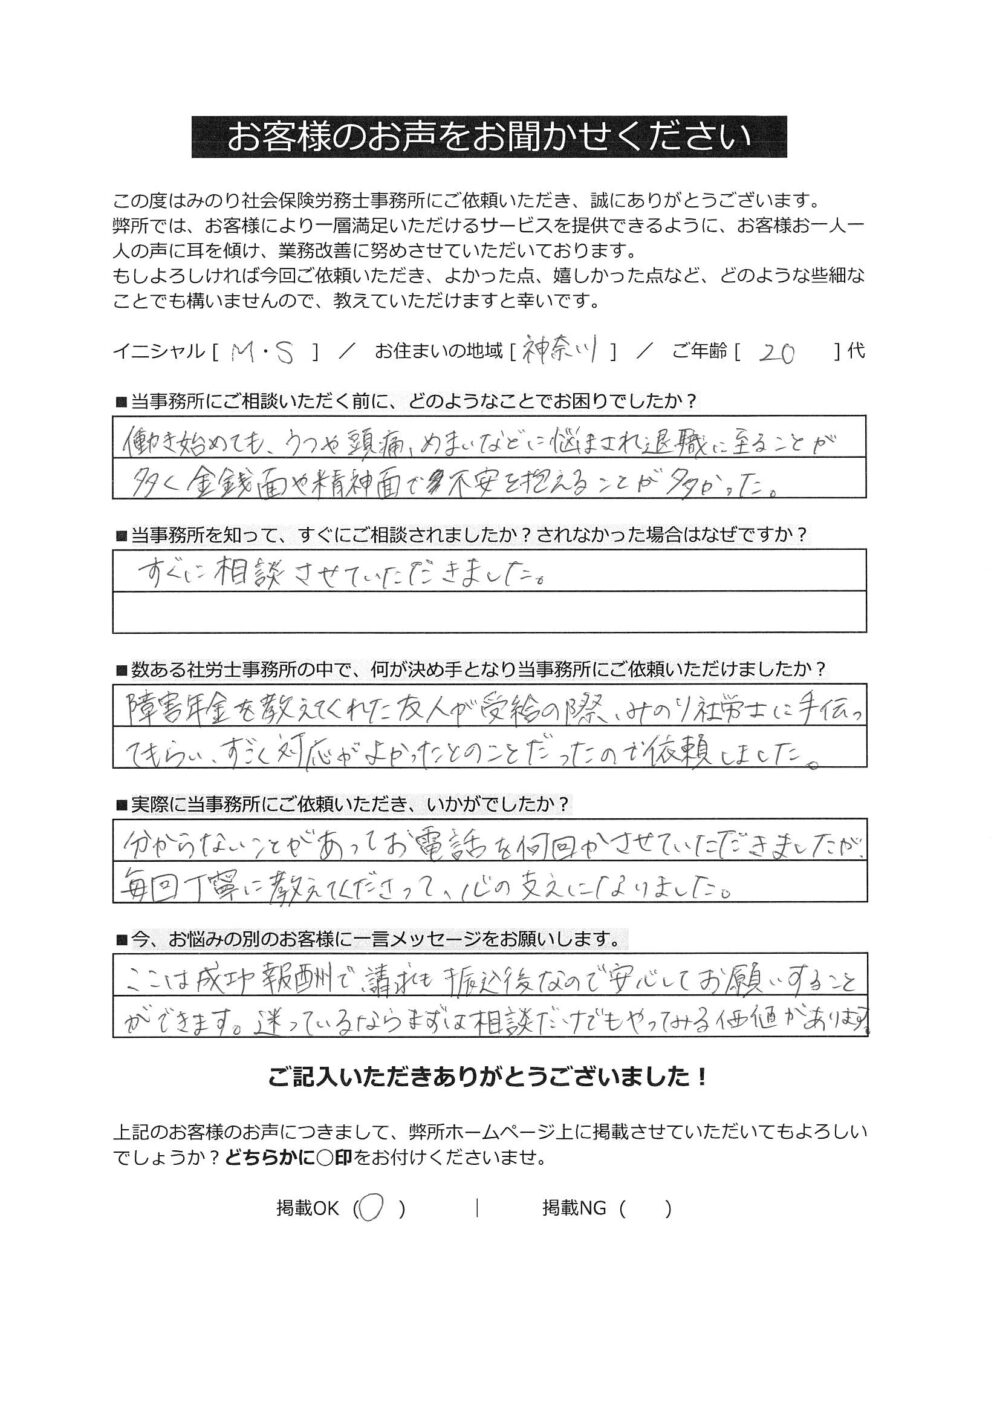 お客様のお声をお聞かせください
この度はみのり社会保険労務士事務所にご依頼いただき、誠にありがとうございます。
弊所では、お客様により一層満足いただけるサービスを提供できるように、お客様お一人一
人の声に耳を傾け、業務改善に努めさせていただいております。
もしよろしければ今回ご依頼いただき、よかった点、嬉しかった点など、どのような些細な
ことでも構いませんので、教えていただけますと幸いです。
イニシャル [ M・S ] ／ お住まいの地域 [ 神奈川 ] ／ ご年齢 [ 20 ] 代
■当事務所にご相談いただく前に、どのようなことでお困りでしたか？
働き始めても、うつや頭痛、めまいなどに悩まされ退職に至ることが
多く金銭面や精神面で不安を抱えることが多かった。
■当事務所を知って、すぐにご相談されましたか？されなかった場合はなぜですか？
すぐに相談させていただきました。
■数ある社労士事務所の中で、何が決め手となり当事務所にご依頼いただけましたか？
障害年金を教えてくれた友人が受給の際、みのり社労士に手伝っ
てもらい、すごく対応がよかったとのことだったので依頼しました。
■実際に当事務所にご依頼いただき、いかがでしたか？
分からないことがあってお電話を何回かさせていただきましたが、
毎回丁寧に教えてくださって、心の支えになりました。
■今、お悩みの別のお客様に一言メッセージをお願いします。
ここは成功報酬で、請求も振込後なので安心してお願いすること
ができます。迷っているならまずは相談だけでもやってみる価値があります。
ご記入いただきありがとうございました！
上記のお客様のお声につきまして、弊所ホームページ上に掲載させていただいてもよろしい
でしょうか？どちらかに○印をお付けくださいませ。
掲載OK (○) ｜ 掲載NG ( )